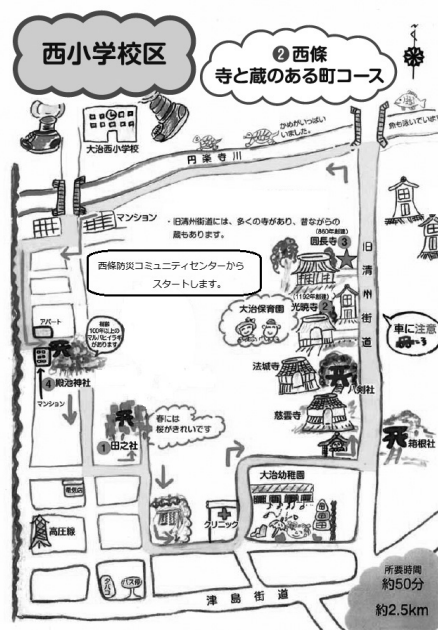 西小学校区
❷西條
寺と蔵のある町コース
大治西小学校
かめがいっぱい
いました。
魚も泳いでいます
円楽寺川
マンション
・旧清州街道には、多くの寺があり、昔ながらの
蔵もあります。
西條防災コミュニティセンターから
スタートします。
(860年創建)
圓長寺 3
旧清州街道
大治保育園
(1192年創建)
光暁寺 2
車に注意
アパート
樹齢
100年以上の
マルバヒイラギ
があります
4 殿治神社
マンション
法城寺
八剣社
慈雲寺
箱根社
春には
桜がきれいです
1 田之社
大治幼稚園
電気店
高圧線
クリニック
タバコ
バス停
津島街道
所要時間
約50分
約2.5km